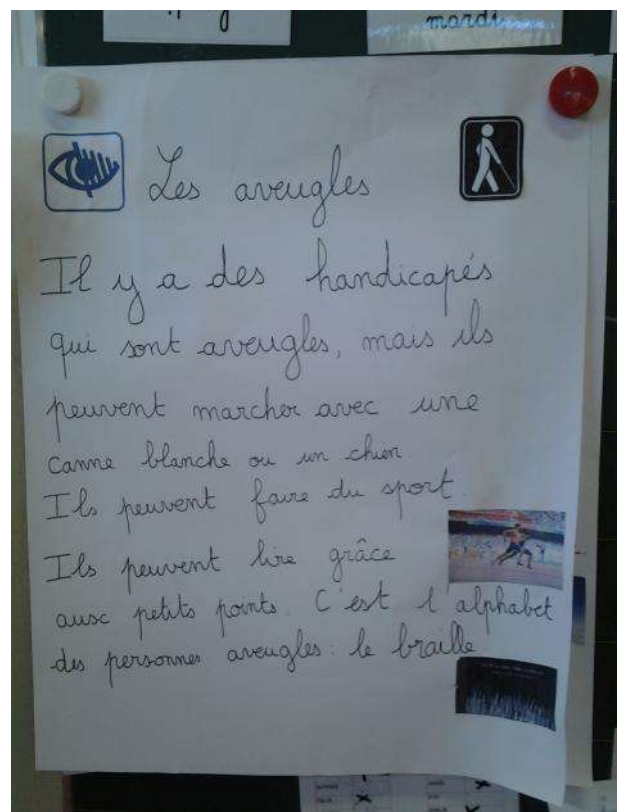 mardi
Les aveugles
Il y a des handicapés
qui sont aveugles, mais ils
peuvent marcher avec une
canne blanche ou un chien.
Ils peuvent faire du sport.
Ils peuvent lire grâce
aux petits points. C'est l'alphabet
des personnes aveugles : le braille